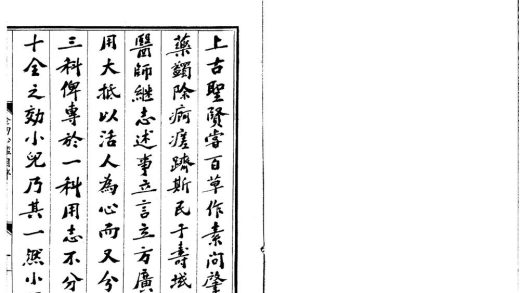 上古聖賢嘗百草作素問肇
藥蠲除痾瘥躋斯民于壽域
醫師繼志述事立言立方廣
用大抵以活人為心而又分
三科俾專於一科用志不分
十全之効小兒乃其一然小